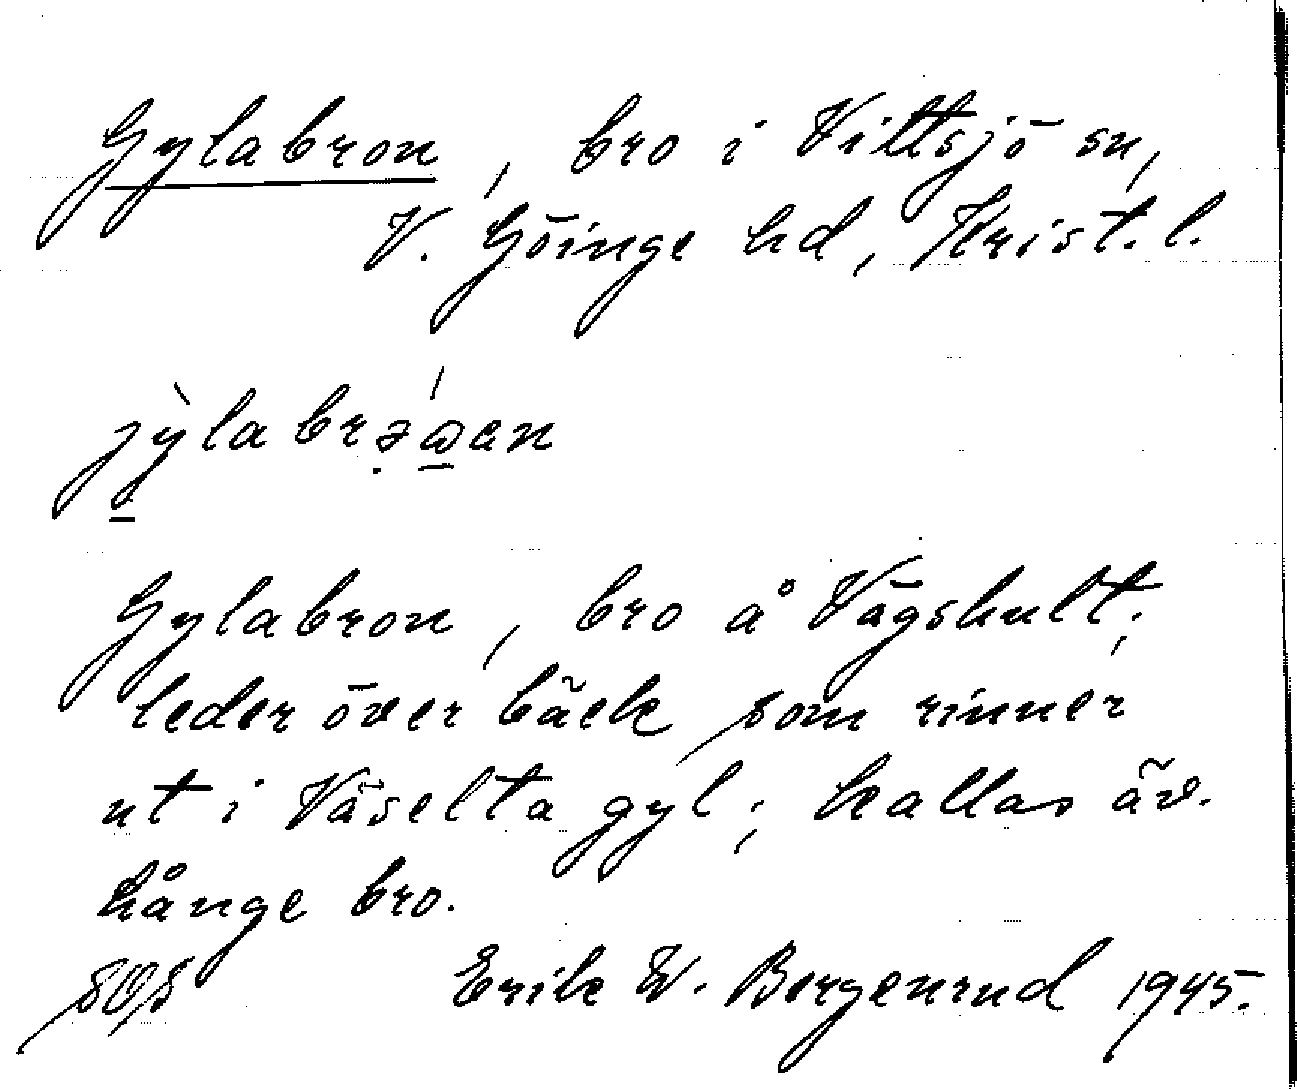 Gylabron, bro i Vittsjö sn,
V. Göinge hd, Krist. l.
jỳlabrə̣́ɷen
Gylabron, bro å Vägshult;
leder över bäck som rinner
ut i Väselta gyl; kallas äv.
hånge bro.
Erik W. Bergenrud 1945.